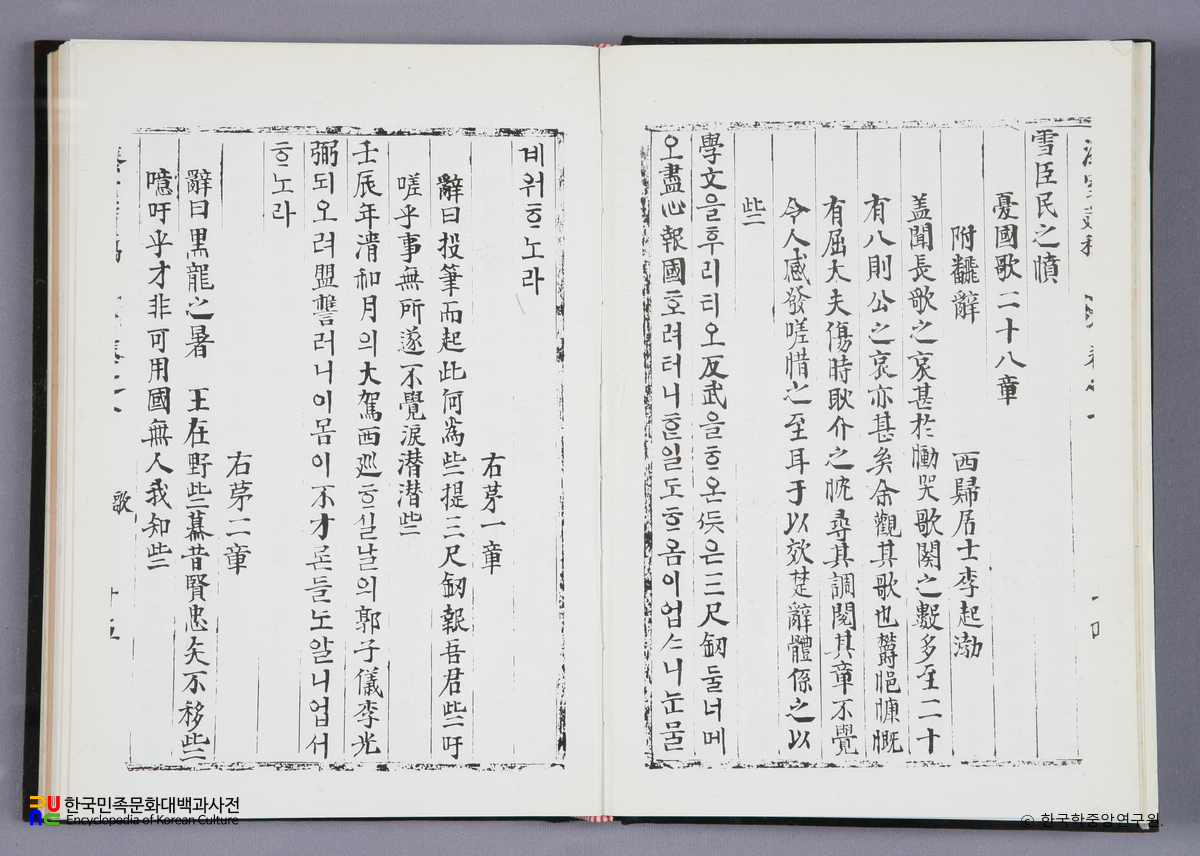 雪臣民之憤
憂國歌二十八章
附飜辭 西歸居士李起浡
盖聞長歌之哀甚於慟哭歌闋之數多至二十
有八則公之哀亦甚矣余觀其歌也欝悒慷慨
有屈大夫傷時耿介之忱尋其調閱其章不覺
令人感發嗟惜之至耳于以效楚辭體係之以
些
學文을후리티오反武을ᄒᆞ온ᄠᅳᆺ은三尺釰둘너메
오盡心報國호려터니ᄒᆞᆫ일도ᄒᆞ옴이업스니눈물
계워ᄒᆞ노라
右苐一章
辭曰投筆而起此何爲些提三尺釰報吾君些吁
嗟乎事無所遂不覺淚潸潸些
壬辰年淸和月의大駕西廵ᄒᆞ실날의郭子儀李光
弼되오려盟誓러니이몸이不才론들노알니업서
ᄒᆞ노라
右苐二章
辭曰黑龍之暑 王在野些慕昔賢忠矢不移些
噫吁乎才非可用國無人我知些
歌 十五
한국민족문화대백과사전
Encyclopedia of Korean Culture
© 한국학중앙연구원.